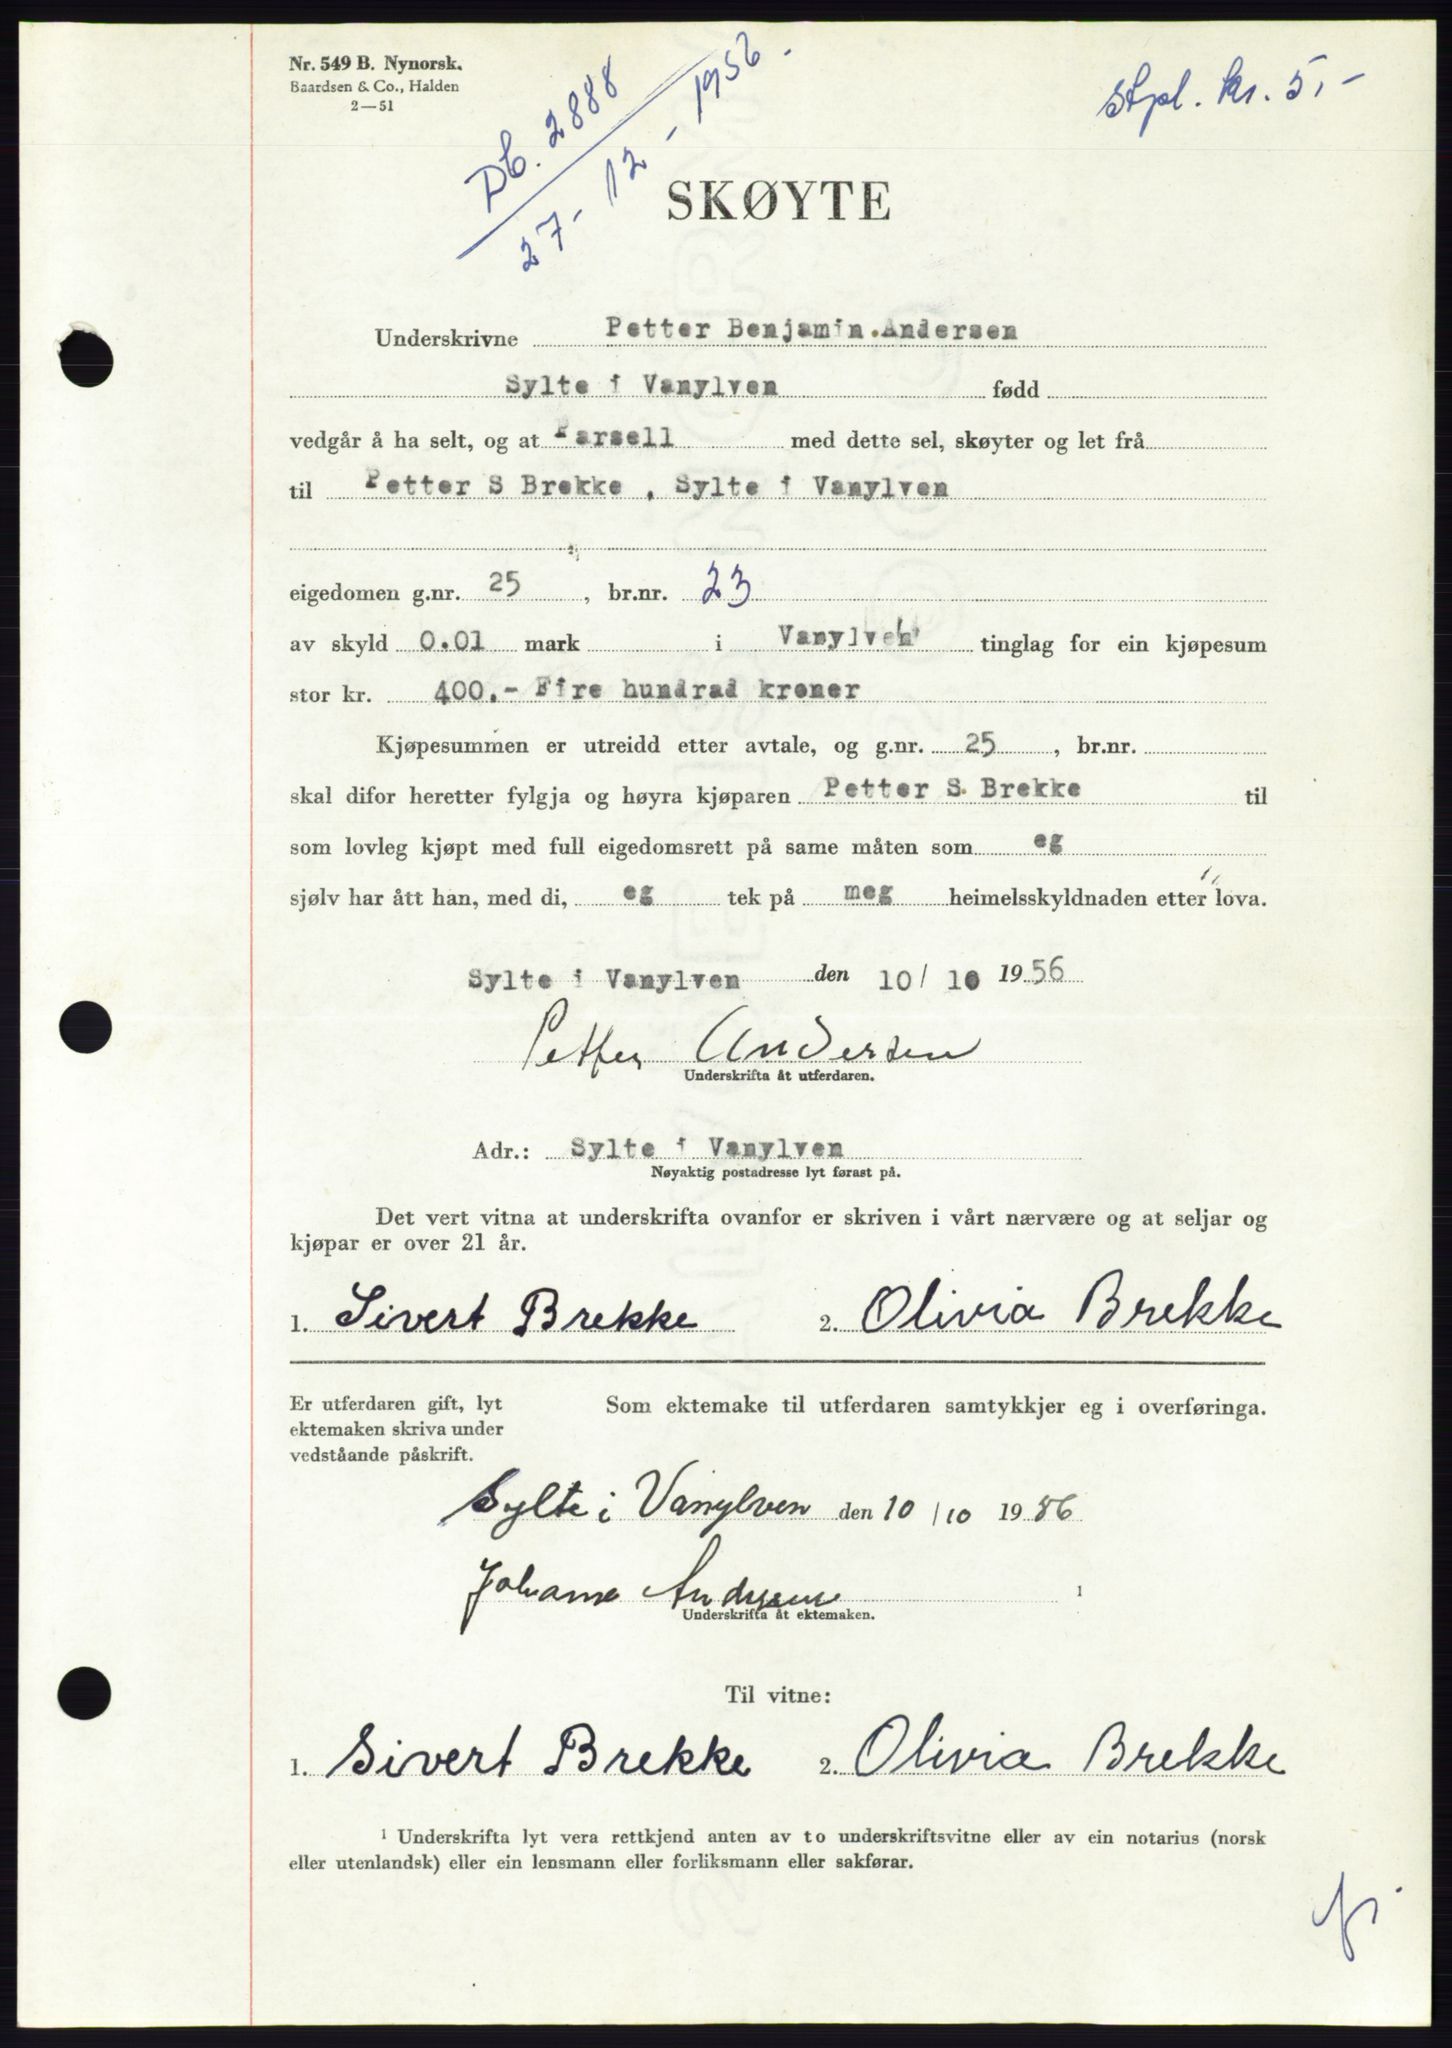 Nr. 549 B. Nynorsk.
Baardsen & Co., Halden
2—51
Db. 2888
27-12-1956.
Stpl. kr. 5,-
SKØYTE
Underskrivne Petter Benjamin Andersen
Sylte i Vanylven fødd
vedgår å ha selt, og at Parsell med dette sel, skøyter og let frå
til Petter S Brekke, Sylte i Vanylven
eigedomen g.nr. 25, br.nr. 23
av skyld 0.01 mark i Vanylven tinglag for ein kjøpesum
stor kr. 400.- Fire hundrad kroner
Kjøpesummen er utreidd etter avtale, og g.nr. 25, br.nr.
skal difor heretter fylgja og høyra kjøparen Petter S. Brekke til
som lovleg kjøpt med full eigedomsrett på same måten som eg
sjølv har ått han, med di, eg tek på meg heimelsskyldnaden etter lova.
Sylte i Vanylven den 10/10 1956
Petter Andersen
Underskrifta åt utferdaren.
Adr.: Sylte i Vanylven
Nøyaktig postadresse lyt førast på.
Det vert vitna at underskrifta ovanfor er skriven i vårt nærvære og at seljar og
kjøpar er over 21 år.
1. Sivert Brekke 2. Olivia Brekke
Er utferdaren gift, lyt
ektemaken skriva under
vedståande påskrift.
Som ektemake til utferdaren samtykkjer eg i overføringa.
Sylte i Vanylven den 10/10 1956
Johanne Andersen 1
Underskrifta åt ektemaken.
Til vitne:
1. Sivert Brekke 2. Olivia Brekke
1 Underskrifta lyt vera rettkjend anten av to underskriftsvitne eller av ein notarius (norsk
eller utenlandsk) eller ein lensmann eller forliksmann eller sakførar.